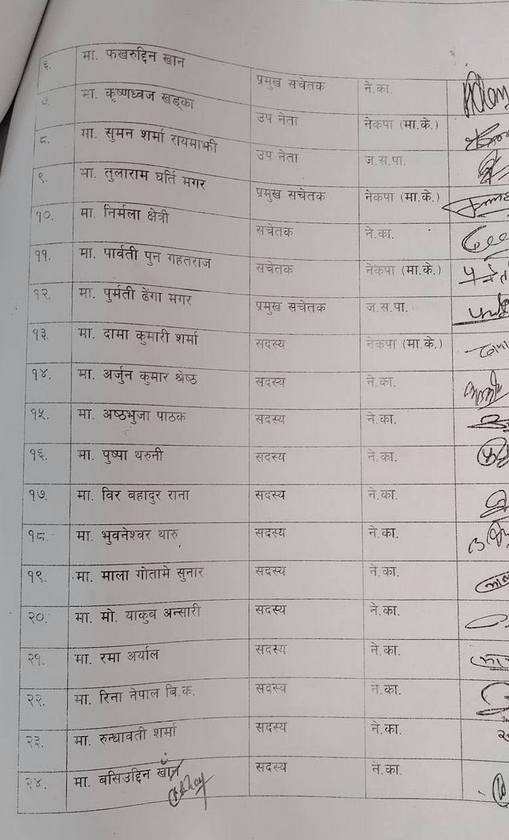 ६. मा. फखरुद्दिन खान प्रमुख सचेतक ने.का.
७. मा. कृष्णध्वज खड्का उप नेता नेकपा (मा.के.)
८. मा. सुमन शर्मा रायमाझी उप नेता ज.स.पा.
९. मा. तुलाराम घर्ति मगर प्रमुख सचेतक नेकपा (मा.के.)
१०. मा. निर्मला क्षेत्री सचेतक ने.का.
११. मा. पार्वती पुन गहतराज सचेतक नेकपा (मा.के.)
१२. मा. पुर्मती ढेंगा मगर प्रमुख सचेतक ज.स.पा.
१३. मा. दामा कुमारी शर्मा सदस्य नेकपा (मा.के.)
१४. मा. अर्जुन कुमार श्रेष्ठ सदस्य ने.का.
१५. मा. अष्ठभुजा पाठक सदस्य ने.का.
१६. मा. पुष्पा थरुनी सदस्य ने.का.
१७. मा. विर बहादुर राना सदस्य ने.का.
१८. मा. भुवनेश्वर थारु सदस्य ने.का.
१९. मा. माला गोतामे सुनार सदस्य ने.का.
२०. मा. मो. याकुव अन्सारी सदस्य ने.का.
२१. मा. रमा अर्याल सदस्य ने.का.
२२. मा. रिना नेपाल वि.क. सदस्य ने.का.
२३. मा. रुन्धावती शर्मा सदस्य ने.का.
२४. मा. बसिउद्दिन खाँन सदस्य ने.का.